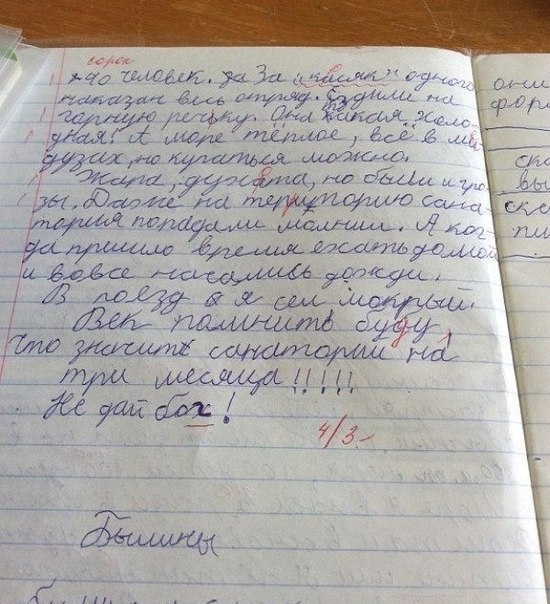 сорок
40 человек. За "касяк" одного
наказан весь отряд. Ездили на
горную речьку. Она какая холо-
дная! А море тёплое, всё в ме
дузах, но купаться можно.
Жара, духата, но были и гро-
зы. Даже на территорию сана-
тория попадали молнии. А ког-
да пришло время ехать домой
и вовсе начались дожди.
В поезд я сел мокрый.
Век помнить буду,
что значить санаторий на
три месяца!!!!!
Не дай бох!
4/3-
Былины
они
фор
ск
вы
ске
пи